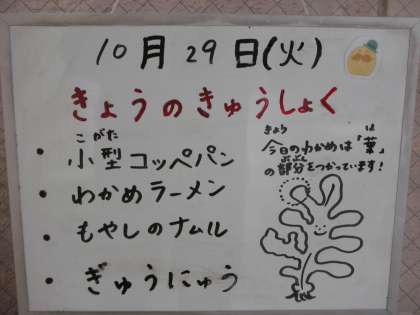 10月29日(火)
きょうのきゅうしょく
こがた
・小型コッペパン
・わかめラーメン
・もやしのナムル
・ぎゅうにゅう
きょう は
今日のわかめは「葉」
ぶぶん
の部分をつかっています!